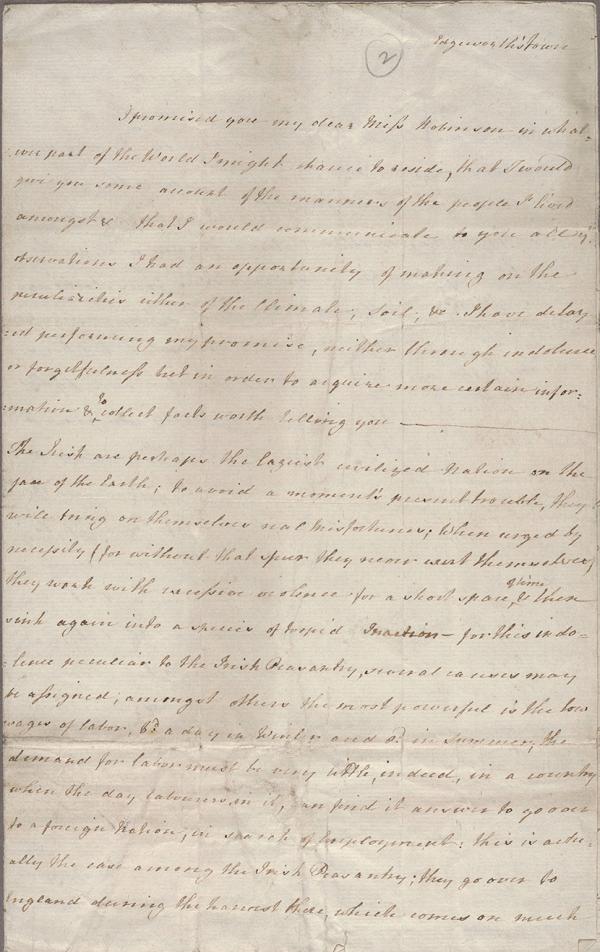 2
Edgeworthstown
I promised you my dear Miss Robinson in what=
=ever part of the World I might chance to reside, that I would
give you some account of the manners of the people I lived
amongst & that I would communicate to you all my
observations I had an opportunity of making on the
peculiarities either of the Climate, Soil, &c. I have delay
=ed performing my promise, neither through indolence
or forgetfulness but in order to acquire more certain infor=
=mation & to collect facts worth telling you
The Irish are perhaps the laziest civilized Nation on the
face of the Earth; to avoid a moment's present trouble, they
will bring on themselves real misfortunes; When urged by
necessity (for without that spur they never exert themselves)
they work with excessive violence for a short space of time & then
sink again into a species of torpid Inaction – for this indo=
=lence peculiar to the Irish Peasantry, several causes may
be assigned; amongst others the most powerful is the low
wages of labor, 6d a day in Winter and 8d in Summer, the
demand for labor must be very little, indeed, in a country
when the day labourers in it, can find it answer to go over
to a foreign Nation, in search of Employment; this is actu=
ally the case among the Irish Peasantry; they go over to
England during the harvest there, which comes on much